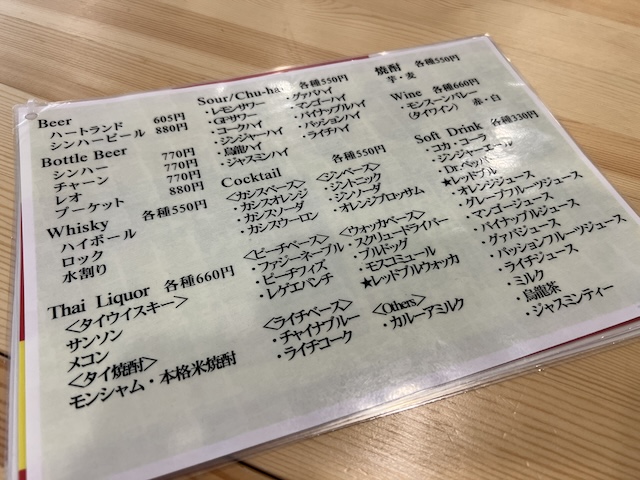 Beer
ハートランド 605円
シンハービール 880円
Bottle Beer
シンハー 770円
チャーン 770円
レオ 770円
プーケット 880円
Whisky 各種550円
ハイボール
ロック
水割り
Thai Liquor 各種660円
<タイウイスキー>
サンソン
メコン
<タイ焼酎>
モンシャム・本格米焼酎
Sour/Chu-hai 各種550円
・レモンサワー
・GFサワー
・コークハイ
・ジンジャーハイ
・烏龍ハイ
・ジャスミンハイ
・グァバハイ
・マンゴーハイ
・パイナップルハイ
・パッションハイ
・ライチハイ
Cocktail 各種550円
<カシスベース>
・カシスオレンジ
・カシスソーダ
・カシスウーロン
<ジンベース>
・ジントニック
・ジンソーダ
・オレンジブロッサム
<ピーチベース>
・ファジーネーブル
・ピーチフィズ
・レゲエパンチ
<ウォッカベース>
・スクリュードライバー
・ブルドッグ
・モスコミュール
★レッドブルウォッカ
<ライチベース>
・チャイナブルー
・ライチコーク
<Others>
・カルーアミルク
焼酎 各種550円
芋・麦
Wine 各種660円
・モンスーンバレー
(タイワイン) 赤・白
Soft Drink 各種330円
・コカ・コーラ
・ジンジャーエール
・Dr.ペッパー
★レッドブル
・オレンジジュース
・グレープフルーツジュース
・マンゴージュース
・パイナップルジュース
・グァバジュース
・パッションフルーツジュース
・ライチジュース
・ミルク
・烏龍茶
・ジャスミンティー